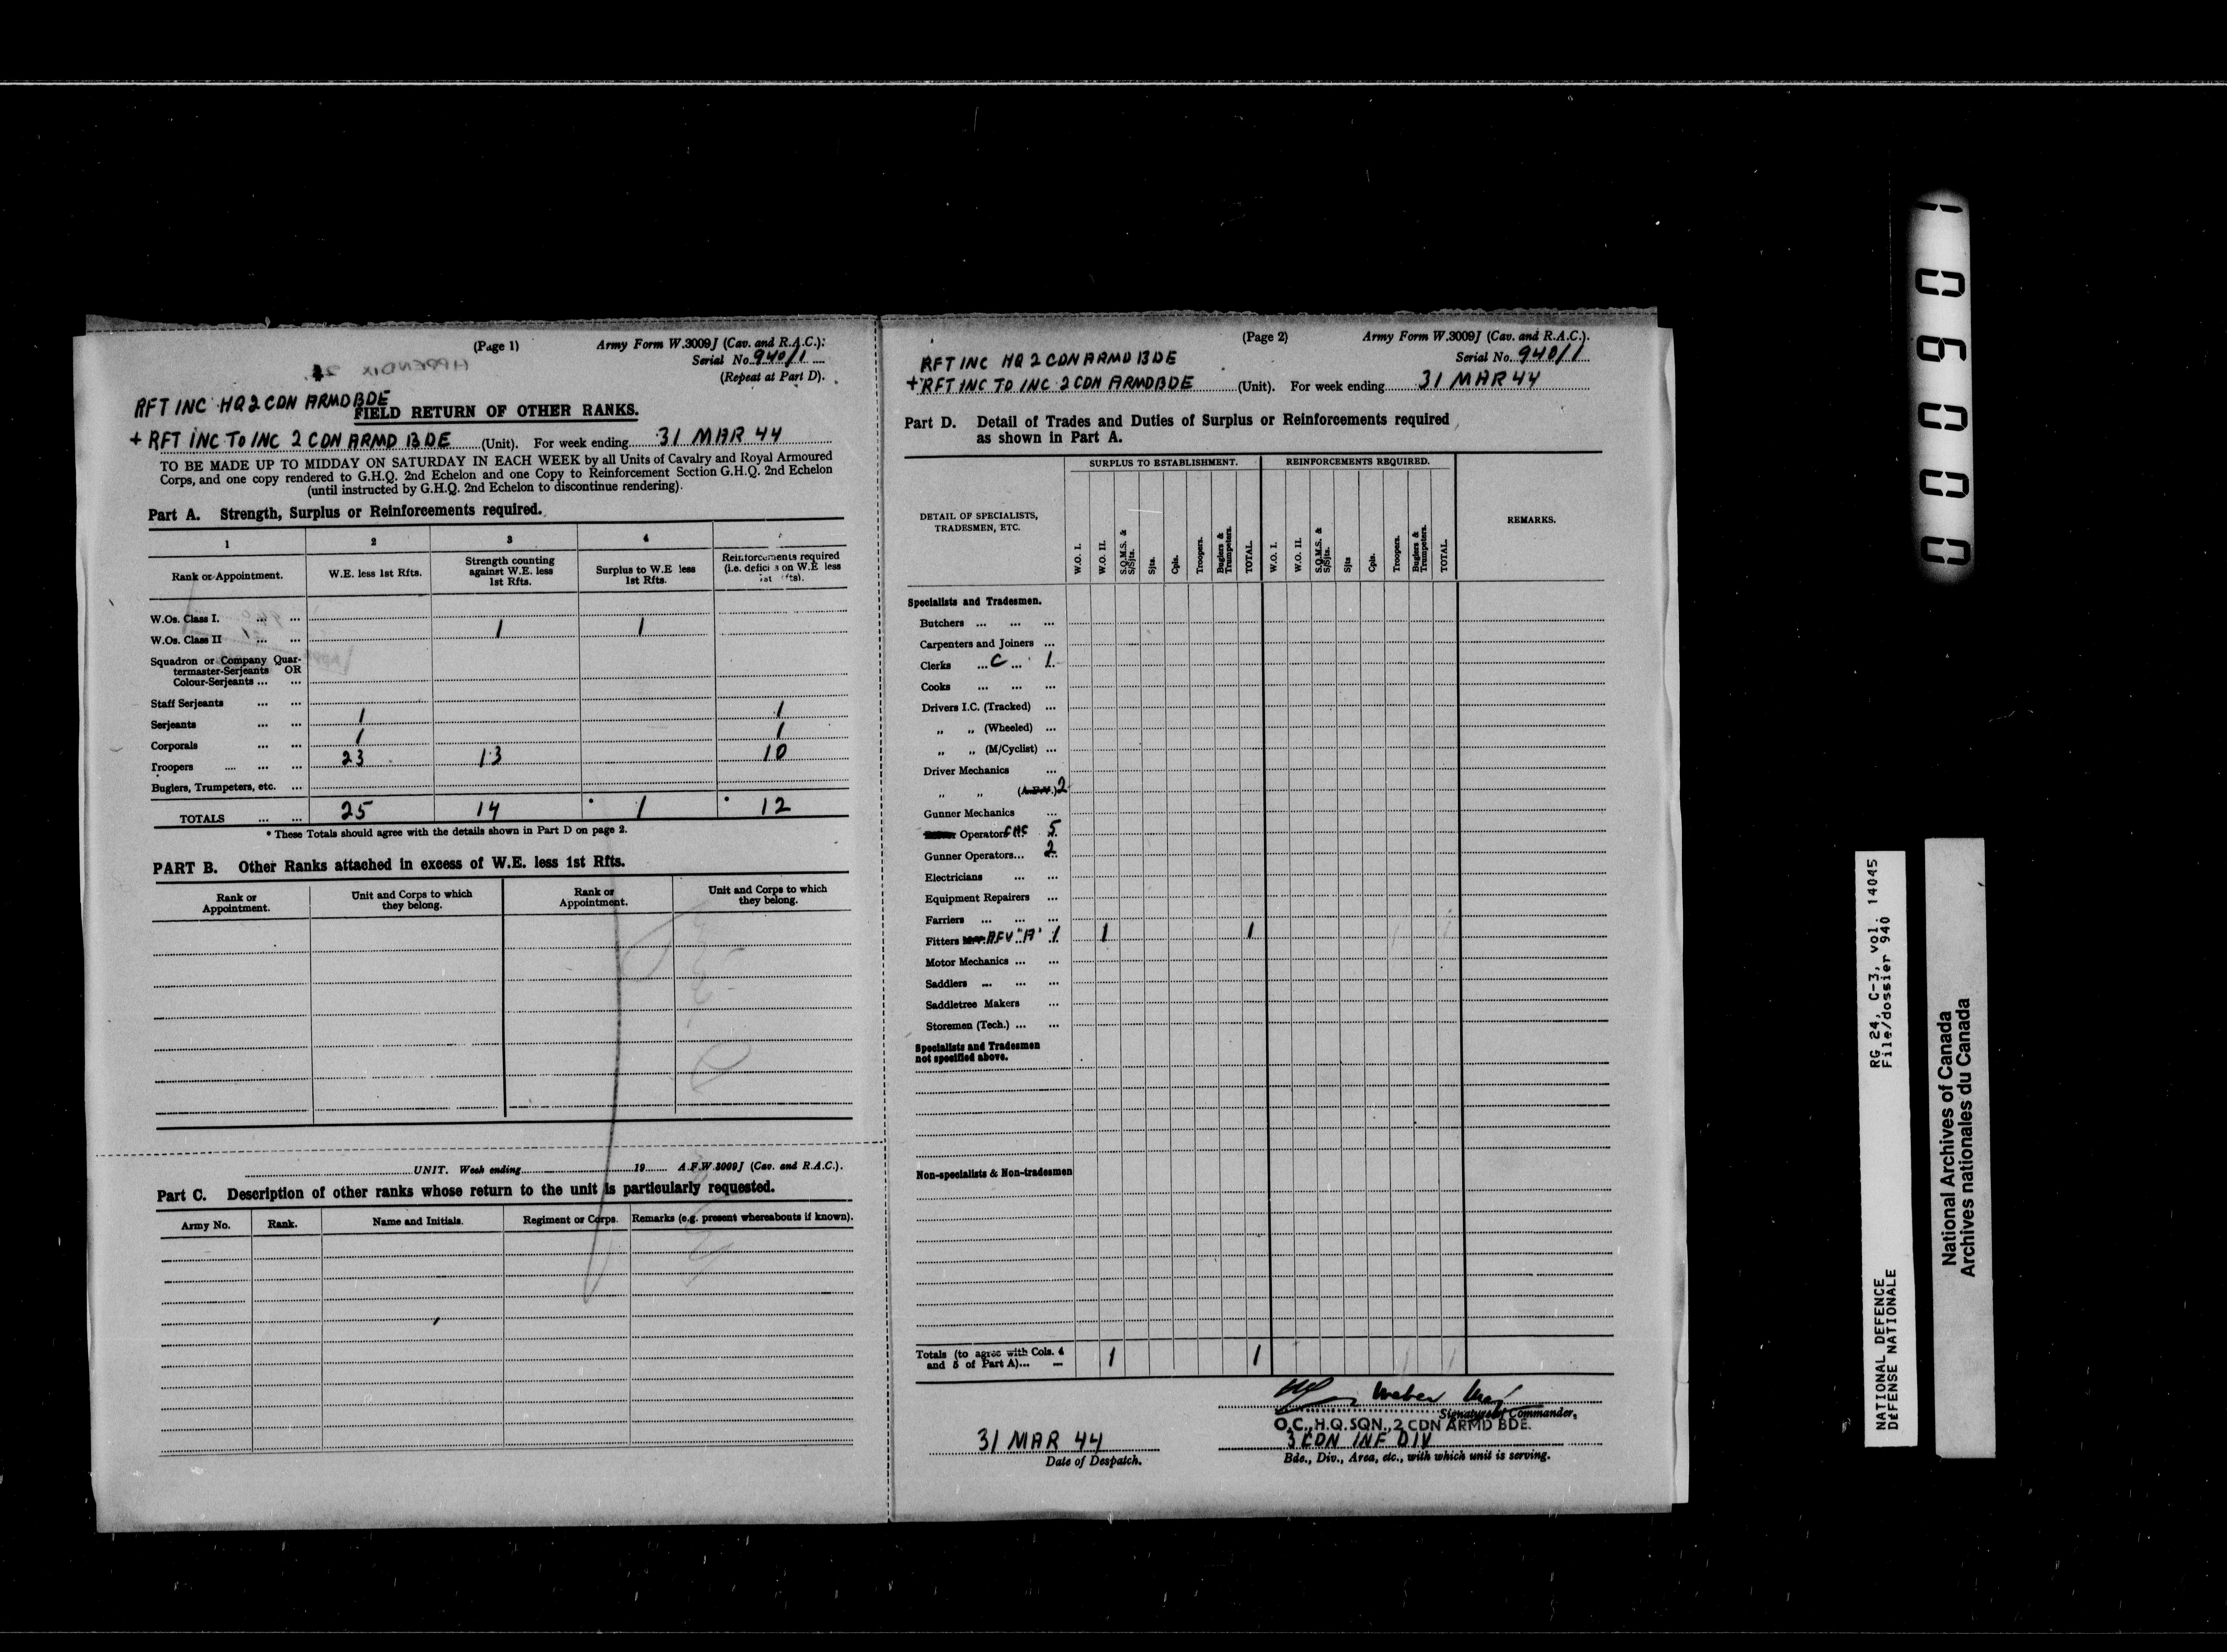 (Page 1)
Army Form W.3009J (Cav. and R.A.C.).
Serial No. 940/1
(Repeat at Part D).
APPENDIX
RFT INC HQ 2 CDN ARMD BDE
FIELD RETURN OF OTHER RANKS.
+ RFT INC TO INC 2 CDN ARMD BDE (Unit). For week ending 31 MAR 44
TO BE MADE UP TO MIDDAY ON SATURDAY IN EACH WEEK by all Units of Cavalry and Royal Armoured
Corps, and one copy rendered to G.H.Q. 2nd Echelon and one Copy to Reinforcement Section G.H.Q. 2nd Echelon
(until instructed by G.H.Q. 2nd Echelon to discontinue rendering).
Part A. Strength, Surplus or Reinforcements required.
1 2 3 4
Rank or Appointment. W.E. less 1st Rfts. Strength counting against W.E. less 1st Rfts. Surplus to W.E less 1st Rfts. Reinforcements required (i.e. deficits on W.E less 1st Rfts).
W.Os. Class I. ... ...
W.Os. Class II ... ... 1 1
Squadron or Company Quar-
termaster-Serjeants OR
Colour-Serjeants ... ...
Staff Serjeants ... ...
Serjeants ... ... 1 1
Corporals ... ... 1 1
Troopers .... ... ... 23 13 10
Buglers, Trumpeters, etc. ...
TOTALS ... ... 25 14 * 1 * 12
* These Totals should agree with the details shown in Part D on page 2.
PART B. Other Ranks attached in excess of W.E. less 1st Rfts.
Rank or Appointment. Unit and Corps to which they belong. Rank or Appointment. Unit and Corps to which they belong.
UNIT. Week ending 19 A.F.W.3009J (Cav. and R.A.C.).
Part C. Description of other ranks whose return to the unit is particularly requested.
Army No. Rank. Name and Initials. Regiment or Corps. Remarks (e.g. present whereabouts if known).
(Page 2)
Army Form W.3009J (Cav. and R.A.C.).
Serial No. 940/1
RFT INC HQ 2 CDN ARMD BDE
+ RFT INC TO INC 2 CDN ARMD BDE (Unit). For week ending 31 MAR 44
Part D. Detail of Trades and Duties of Surplus or Reinforcements required
as shown in Part A.
SURPLUS TO ESTABLISHMENT. REINFORCEMENTS REQUIRED.
DETAIL OF SPECIALISTS, TRADESMEN, ETC.
W.O. I. W.O. II. S.Q.M.S. & S/Sjts. Sjts. Cpls. Troopers. Buglers & Trumpeters. TOTAL. W.O. I. W.O. II. S.Q.M.S. & S/Sjts. Sjts Cpls. Troopers. Buglers & Trumpeters. TOTAL.
REMARKS.
Specialists and Tradesmen.
Butchers ... ... ...
Carpenters and Joiners ...
Clerks ... C ... 1
Cooks ... ... ...
Drivers I.C. (Tracked) ...
„ „ (Wheeled) ...
„ „ (M/Cyclist) ...
Driver Mechanics ...
„ „ 2
Gunner Mechanics ...
Operators 5
Gunner Operators... 2
Electricians ... ...
Equipment Repairers ...
Farriers ... ... ...
Fitters AFV "A" 1 1 1
Motor Mechanics ... ...
Saddlers ... ... ...
Saddletree Makers ...
Storemen (Tech.) ... ...
Specialists and Tradesmen
not specified above.
Non-specialists & Non-tradesmen
Totals (to agree with Cols. 4
and 5 of Part A)... 1 1
Weber Maj
Signature of Commander.
O.C., H.Q. SQN., 2 CDN ARMD BDE.
31 MAR 44 3 CDN INF DIV
Date of Despatch. Bde., Div., Area, etc., with which unit is serving.
0000901
NATIONAL DEFENCE RG 24, C-3, vol. 14045
DÉFENSE NATIONALE File/dossier 940
National Archives of Canada
Archives nationales du Canada